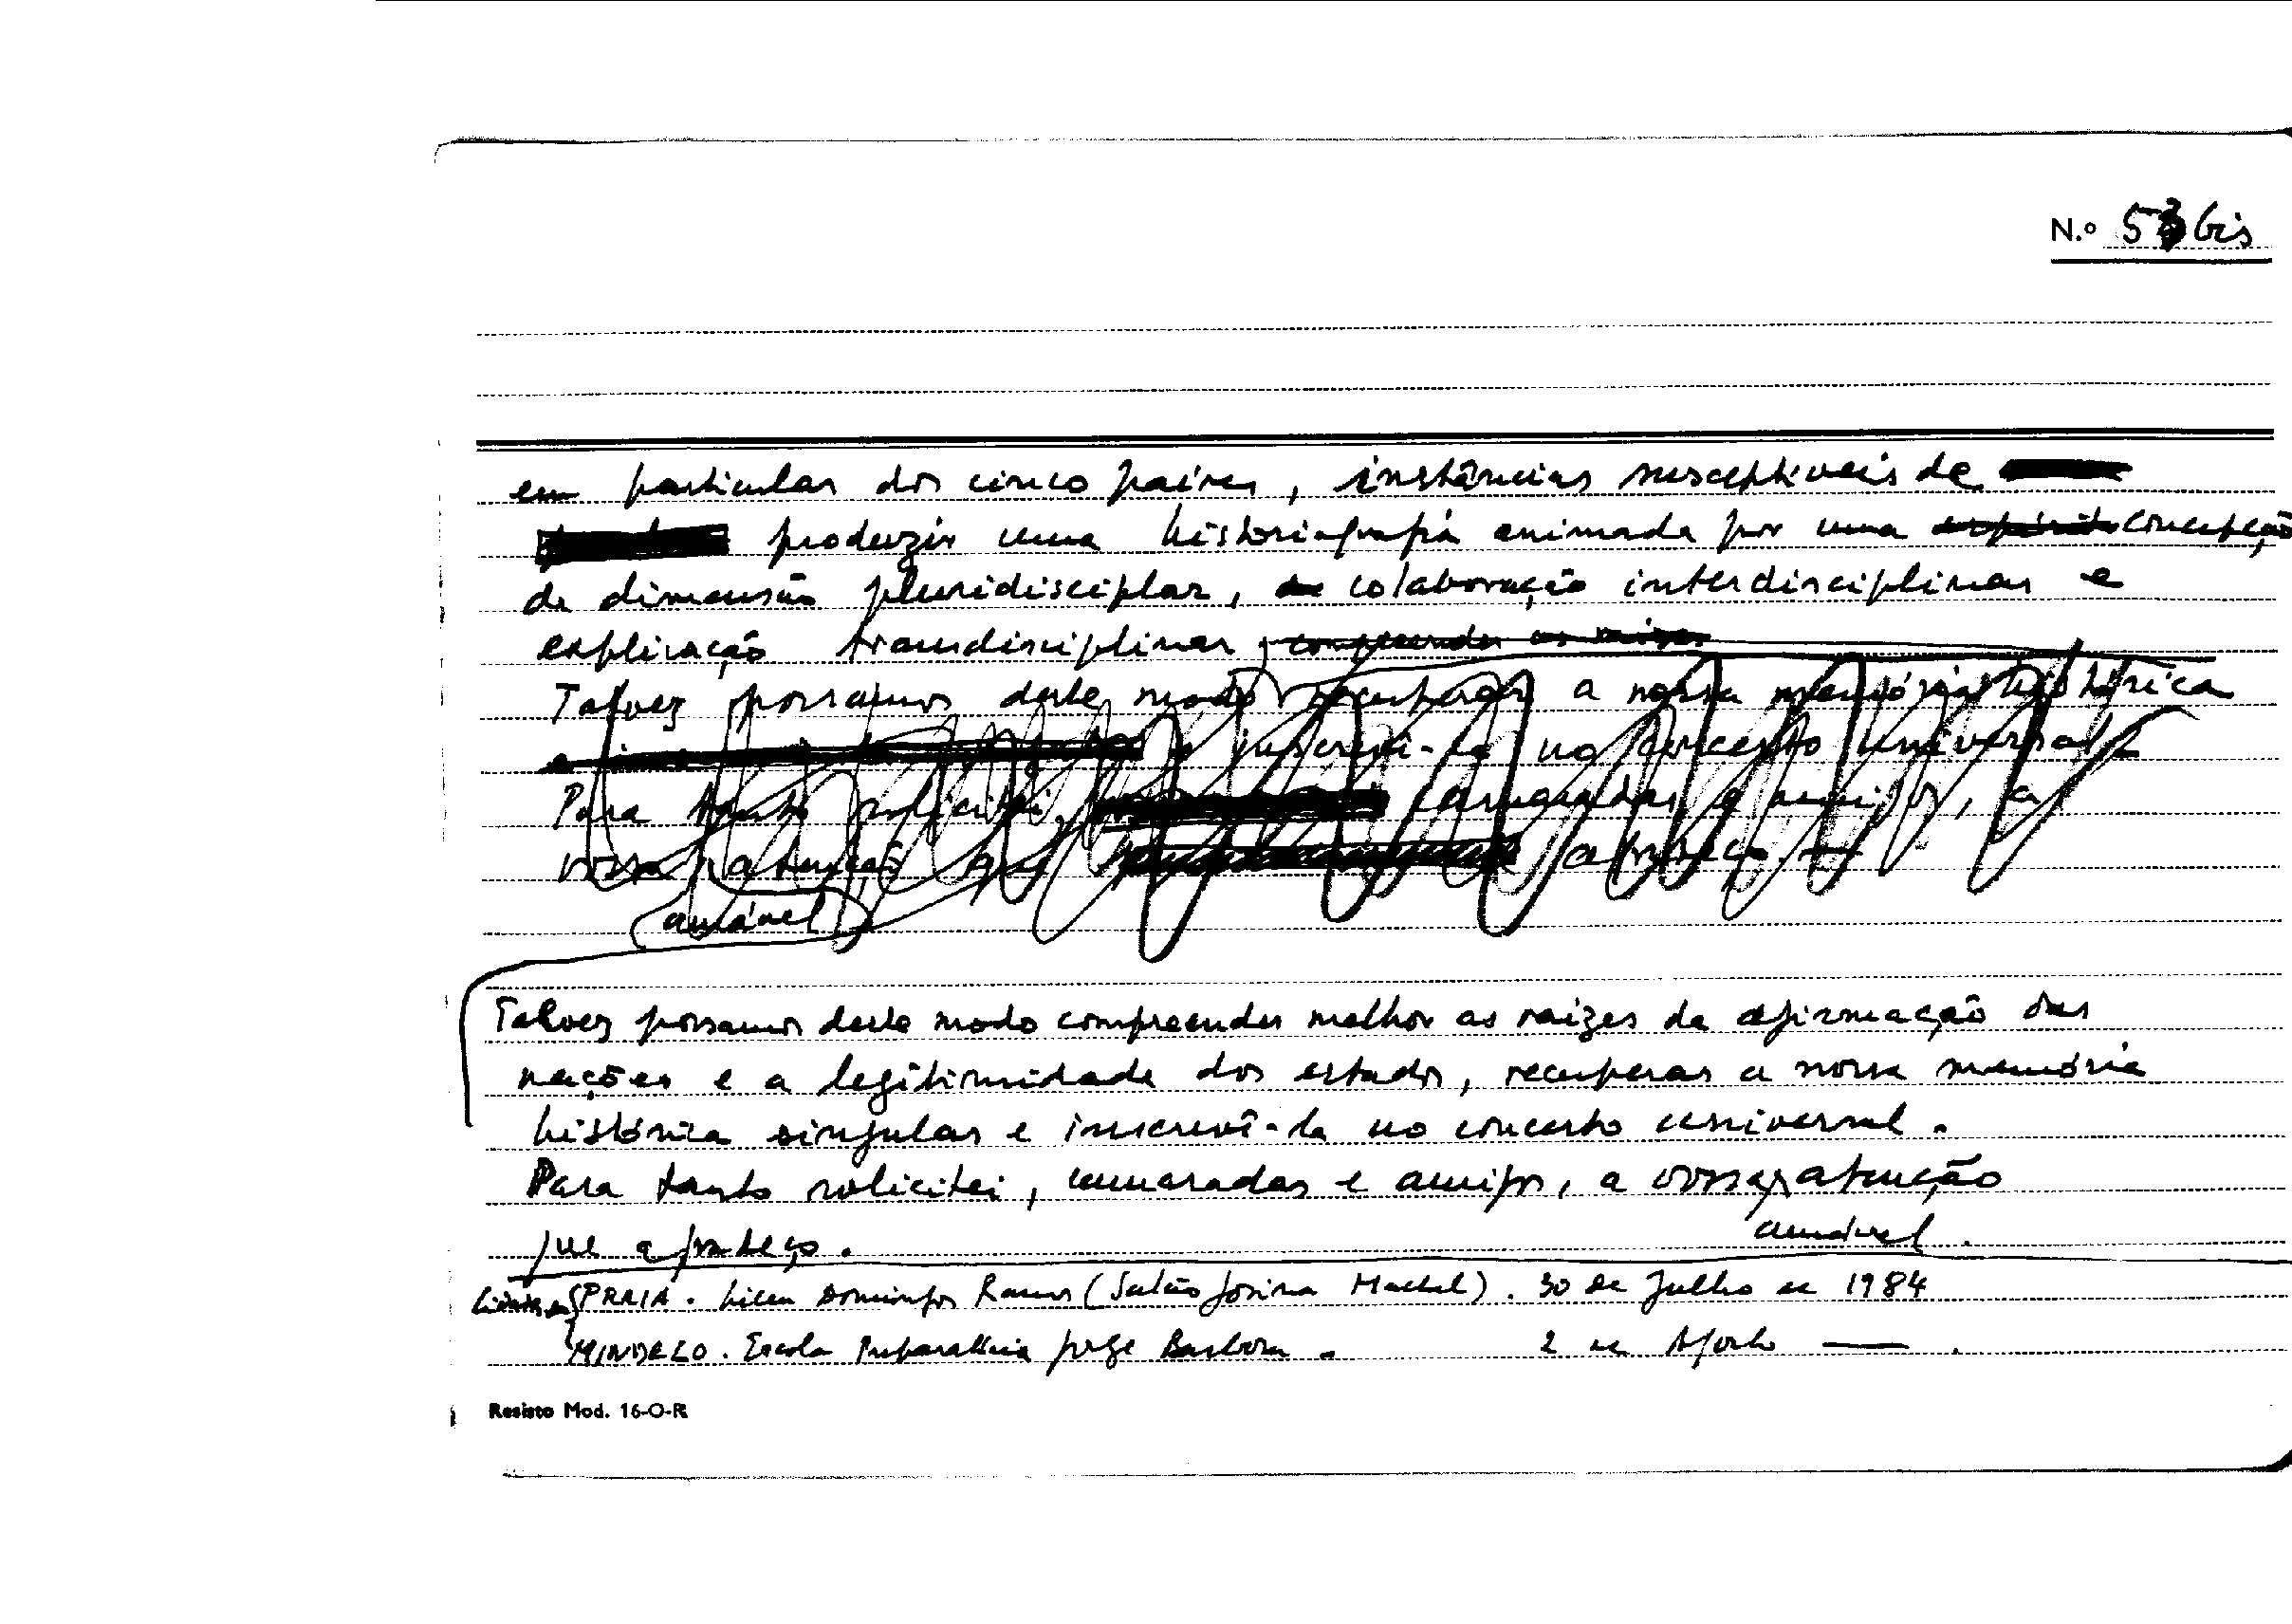 N.º 53 bis
em particular dos cinco países, instâncias susceptíveis de
produzir uma historiografia animada por uma espírito concepção
de dimensão pluridisciplar, de colaboração interdisciplinar e
explicação transdisciplinar, compreender as raízes
Talvez possamos deste modo recuperar a nossa memória histórica
e inscrevê-la no concerto universal
Para tanto solicitei, camaradas e amigos, a
vossa atenção que agradeço
amável
Talvez possamos deste modo compreender melhor as raízes da afirmação das
nações e a legitimidade dos estados, recuperar a nossa memória
histórica singular e inscrevê-la no concerto universal.
Para tanto solicitei, camaradas e amigos, a vossa atenção
amável.
que agradeço.
PRAIA. Liceu Domingos Ramos (Salão Josina Machel). 30 de Julho de 1984
MINDELO. Escola Preparatória Jorge Barbosa. 2 de Agosto —.
Resisto Mod. 16-O-R